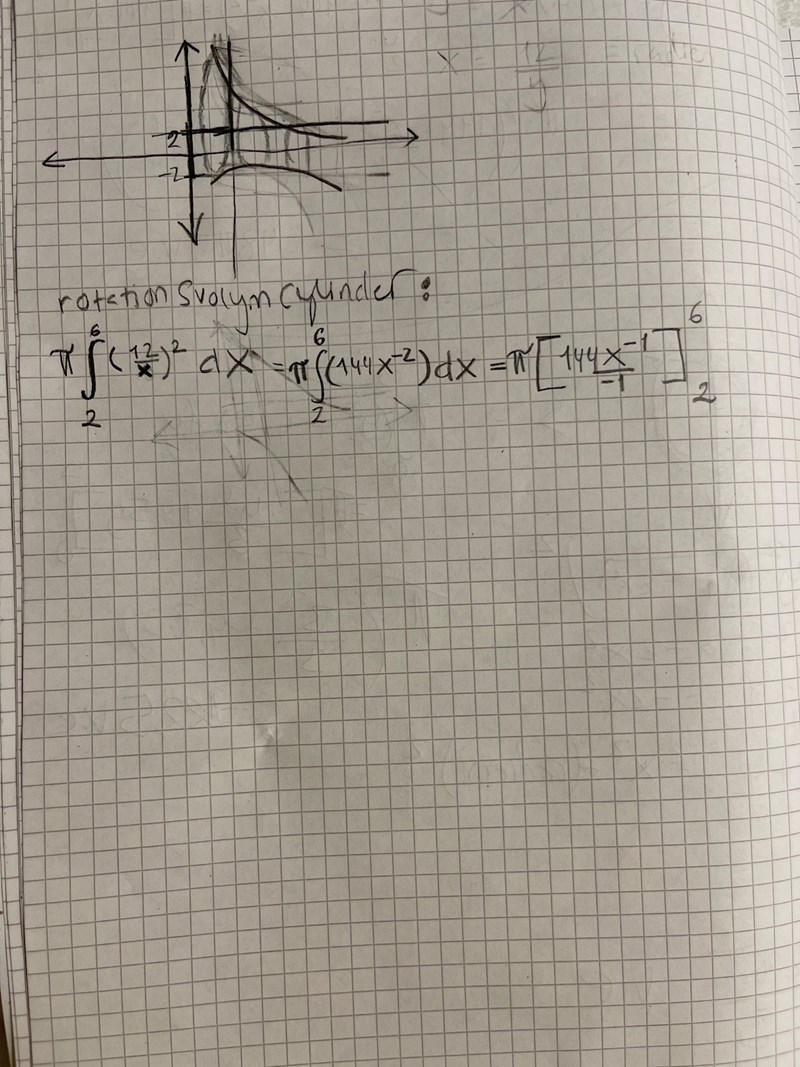 x = 12/y
2
-2
rotationsvolym cylinder:
π∫₂⁶(12/x)² dx = π∫₂⁶(144x⁻²)dx = π[144x⁻¹/-1]₂⁶